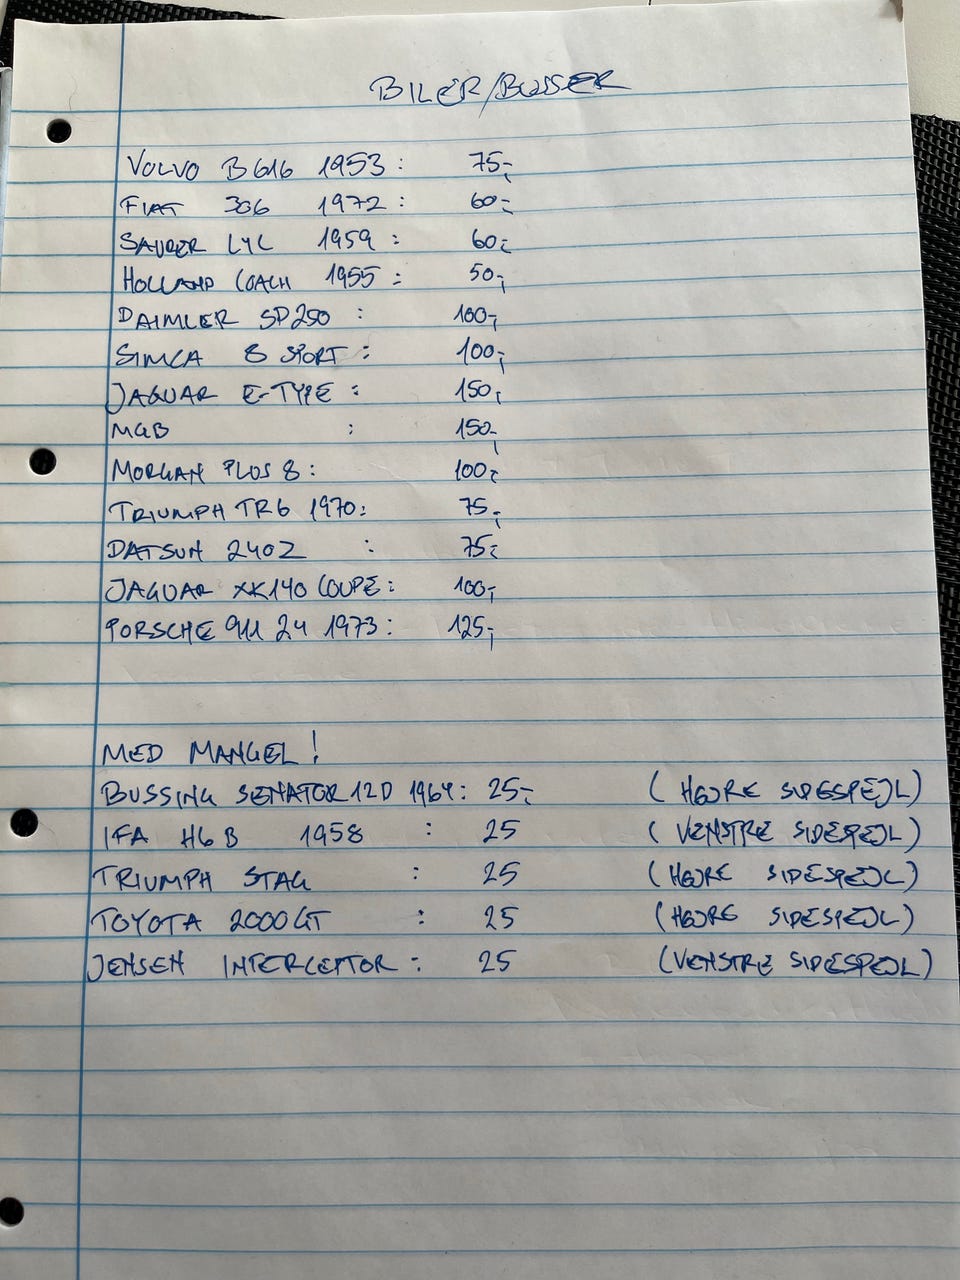 BILER/BUSSER
VOLVO B616 1953: 75,-
FIAT 306 1972: 60,-
SAURER L4C 1959: 60,-
HOLLAND COACH 1955: 50,-
DAIMLER SP250 : 100,-
SIMCA 8 SPORT: 100,-
JAGUAR E-TYPE: 150,-
MGB : 150,-
MORGAN PLUS 8: 100,-
TRIUMPH TR6 1970: 75,-
DATSUN 240Z : 75,-
JAGUAR XK140 COUPE: 100,-
PORSCHE 911 24 1973: 125,-
MED MANGEL!
BUSSING SENATOR 12D 1964: 25,- (HØJRE SIDESPEJL)
IFA H6B 1958 : 25 (VENSTRE SIDESPEJL)
TRIUMPH STAG : 25 (HØJRE SIDESPEJL)
TOYOTA 2000GT : 25 (HØJRE SIDESPEJL)
JENSEN INTERCEPTOR: 25 (VENSTRE SIDESPEJL)